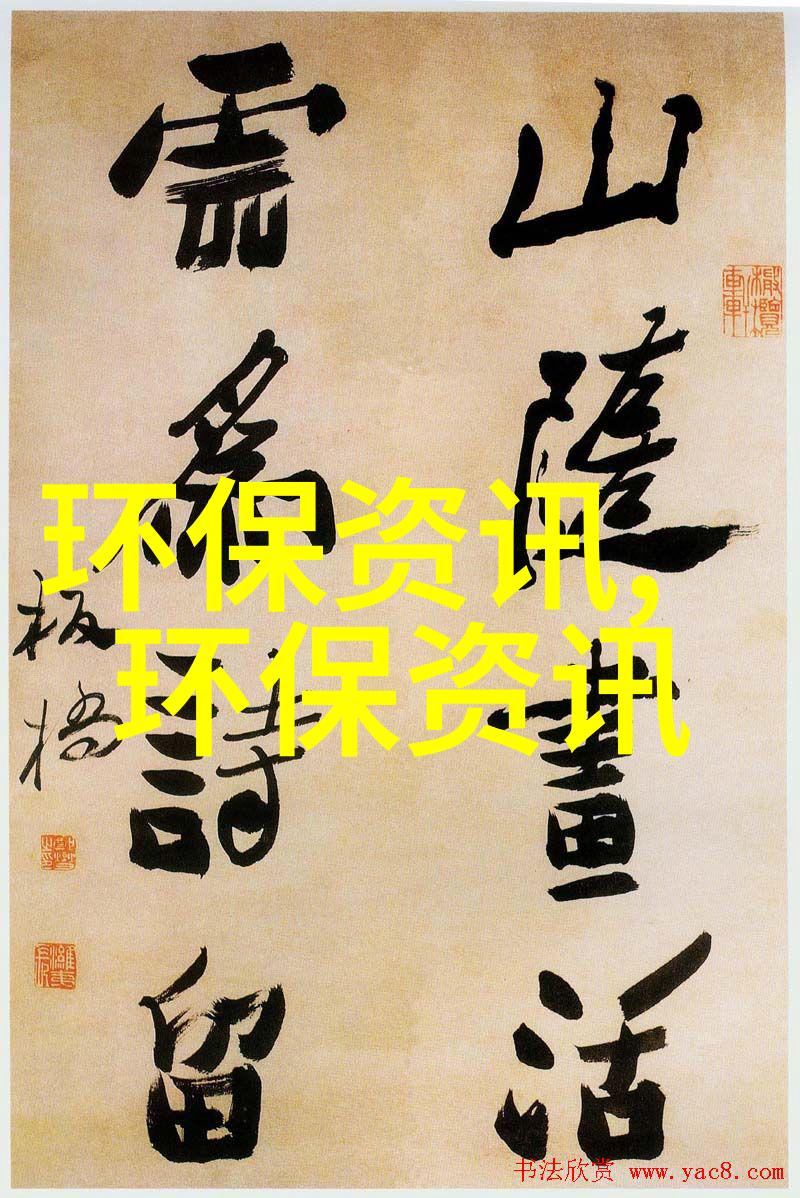 山隨畫活
雲爲詩留
板橋
环保资讯,
环保资讯
书法欣赏 www.yac8.com